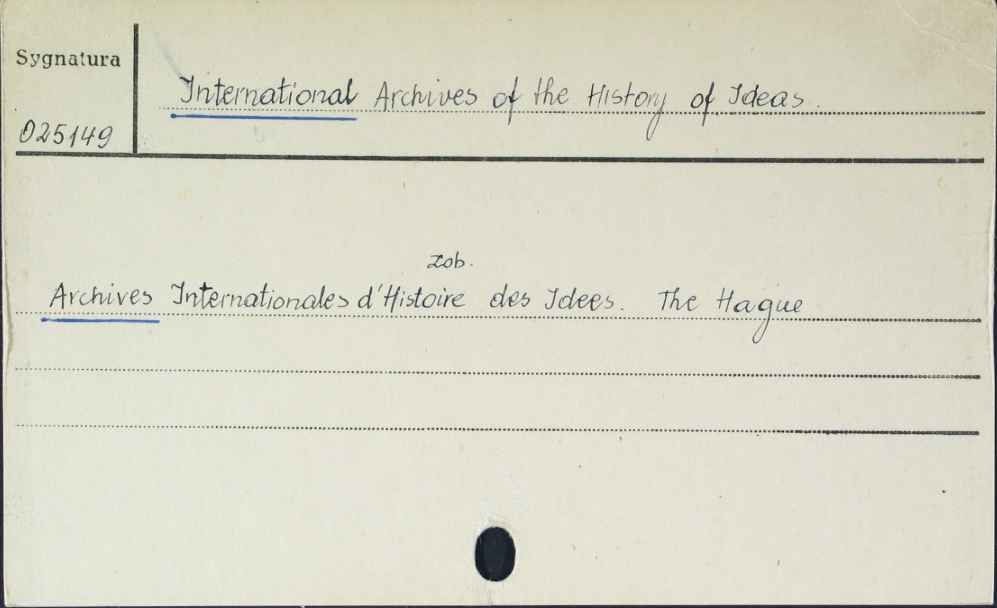 Sygnatura
International Archives of the History of Ideas.
025149
zob.
Archives Internationales d'Histoire des Idees. The Hague